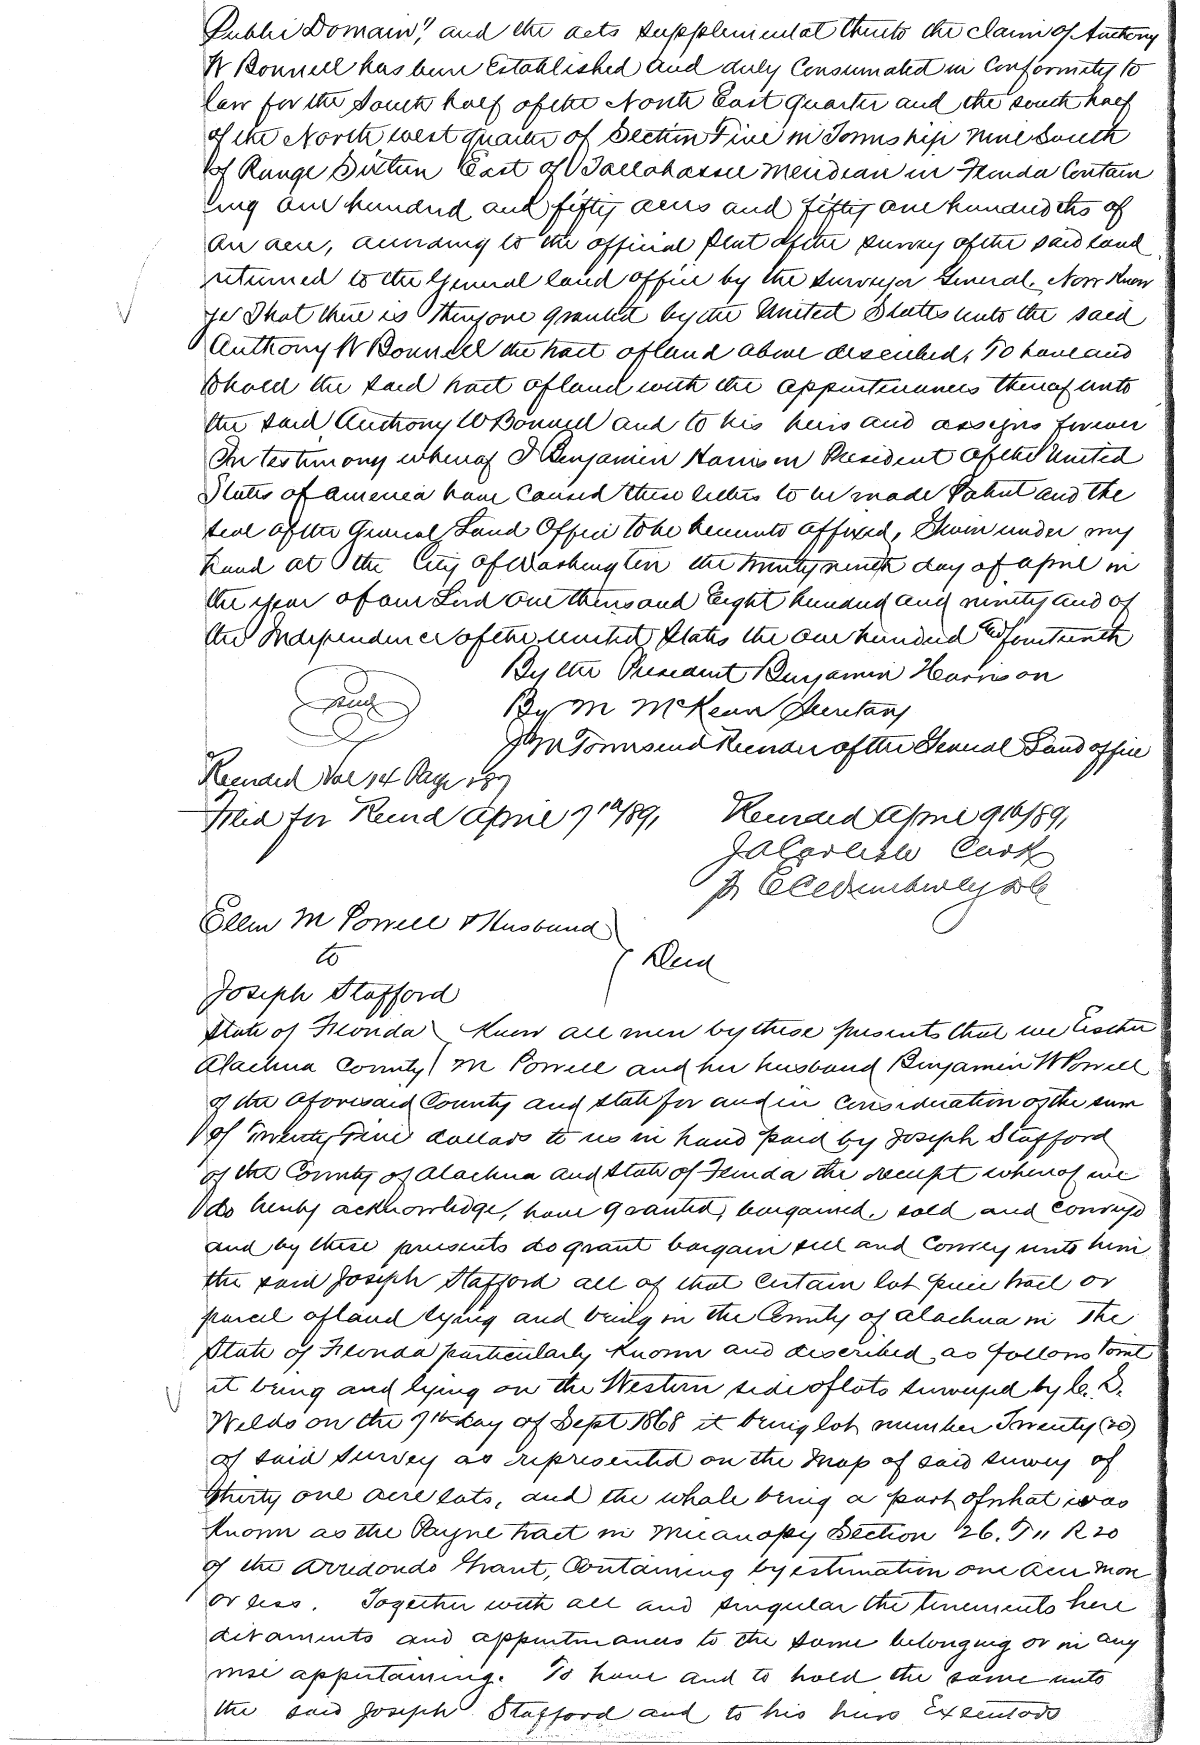 Public Domain", and the acts supplemental thereto the claim of Anthony
W Bonnell has been Established and duly Consumated in Conformity to
law for the South half of the North East quarter and the south half
of the North west quarter of Section Five in Township nine South
of Range Sixteen East of Tallahassee Meridian in Florida Contain
ing one hundred and fifty acres and fifty one hundredths of
an acre, according to the official plat of the survey of the said land
returned to the General land office by the surveyor General. Now Know
ye That there is therefore granted by the United States unto the said
Anthony W Bonnell the tract of land above described, To have and
to hold the said tract of land with the appurtenances thereof unto
the said Anthony W Bonnell and to his heirs and assigns forever
In testimony whereof I Benjamin Harrison President of the United
States of america have caused these letters to be made Patent and the
seal of the General Land Office to be hereunto affixed, Given under my
hand at the City of Washington the twenty ninth day of april in
the year of our Lord one thousand Eight hundred and ninety and of
the Independence of the united States the one hundred and fourteenth
By the President Benjamin Harrison
Seal
By M McKean Secretary
J M Townsend Recorder of the General Land office
Recorded Vol 14 Page 187
Filed for Record April 7th/91, Recorded April 9th/91,
J A Carlisle Clerk
E C Wimberly D C
Ellen M Powell & Husband
to Deed
Joseph Stafford
State of Florida Know all men by these presents that we Esther
Alachua County M Powell and her husband Benjamin W Powell
of the aforesaid County and state for and in consideration of the sum
of Twenty Five dollars to us in hand paid by Joseph Stafford
of the County of Alachua and State of Florida the receipt whereof we
do hereby acknowledge, have granted, bargained, sold and conveyed
and by these presents do grant bargain sell and Convey unto him
the said Joseph Stafford all of that certain lot piece tract or
parcel of land lying and being in the County of Alachua in The
State of Florida particularly known and described as follows towit
it being and lying on the Western side of lots surveyed by C. S.
Welds on the 7th day of Sept 1868 it being lot number Twenty (20)
of said survey as represented on the map of said survey of
thirty one acre lots, and the whole being a part of what was
known as the Payne tract in Micanopy Section 26. T 11 R 20
of the Arredondo Grant, Containing by estimation one acre more
or less. Together with all and singular the tenements here
ditaments and appurtenances to the same belonging or in any
wise appertaining. To have and to hold the same unto
the said Joseph Stafford and to his heirs Executors